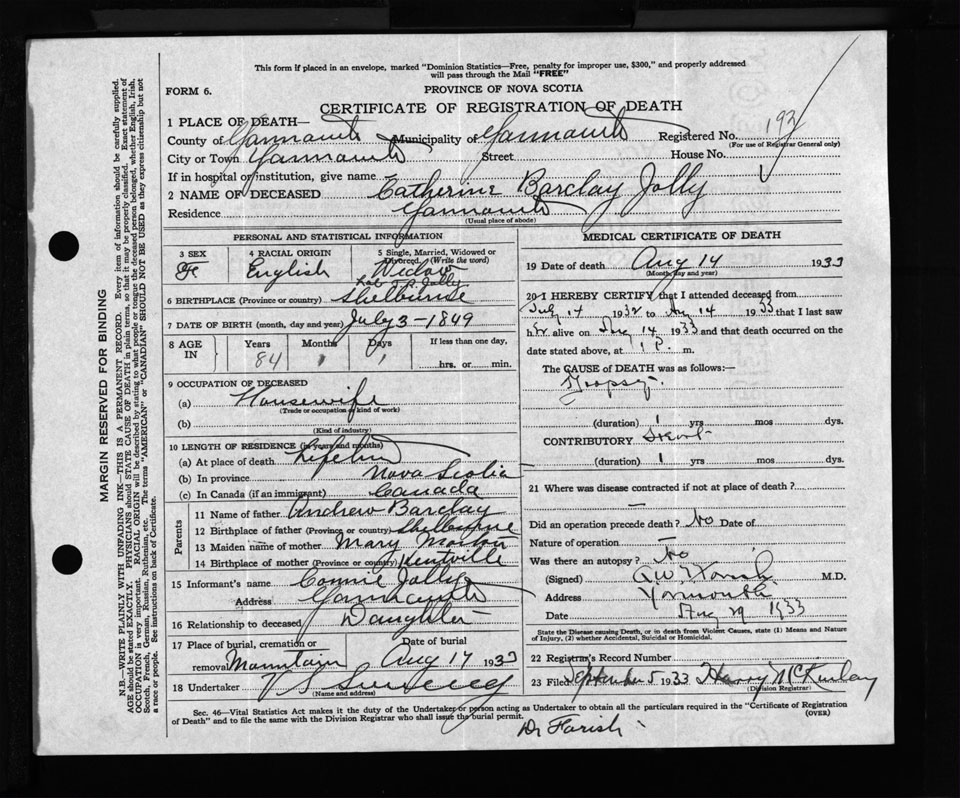 This form if placed in an envelope, marked "Dominion Statistics—Free, penalty for improper use, $300," and properly addressed
will pass through the Mail "FREE"
FORM 6.
PROVINCE OF NOVA SCOTIA
CERTIFICATE OF REGISTRATION OF DEATH
1 PLACE OF DEATH—
County of Yarmouth Municipality of Yarmouth Registered No. 192
(For use of Registrar General only)
City or Town Yarmouth Street House No.
If in hospital or institution, give name
2 NAME OF DECEASED Catherine Barclay Jolly
Residence Yarmouth
(Usual place of abode)
PERSONAL AND STATISTICAL INFORMATION
3 SEX 4 RACIAL ORIGIN 5 Single, Married, Widowed or Divorced. (Write the word)
Fe English Widow
Jolly
6 BIRTHPLACE (Province or county) Shelburne
7 DATE OF BIRTH (month, day and year) July 3 - 1849
8 AGE IN Years Months Days If less than one day,
84 1 1 hrs. or min.
9 OCCUPATION OF DECEASED
(a) Housewife
(Trade or occupation or kind of work)
(b)
(Kind of industry)
10 LENGTH OF RESIDENCE (in years and months)
(a) At place of death Lifetime
(b) In province Nova Scotia
(c) In Canada (if an immigrant) Canada
Parents
11 Name of father Andrew Barclay
12 Birthplace of father (Province or county) Shelburne
13 Maiden name of mother Mary
14 Birthplace of mother (Province or county) Kentville
15 Informant's name Connie Jolly
Address Yarmouth
16 Relationship to deceased Daughter
17 Place of burial, cremation or removal Mountain Date of burial Aug 17 1933
18 Undertaker V S Sweeney
(Name and address)
MEDICAL CERTIFICATE OF DEATH
19 Date of death Aug 14 1933
(Month, day and year)
20 I HEREBY CERTIFY that I attended deceased from
July 14 1932 to Aug 14 1933 that I last saw
her alive on Aug 14 1933 and that death occurred on the
date stated above, at 1 P. m.
The CAUSE of DEATH was as follows:—
Dropsy
(duration) 1 yrs mos dys.
CONTRIBUTORY Heart
(duration) 1 yrs mos dys.
21 Where was disease contracted if not at place of death?
—
Did an operation precede death? No Date of
Nature of operation —
Was there an autopsy? No
(Signed) G W T Farish M.D.
Address Yarmouth
Date Aug 29 1933
State the Disease causing Death, or in death from Violent Causes, state (1) Means and Nature
of Injury, (2) whether Accidental, Suicidal or Homicidal.
22 Registrar's Record Number
23 Filed September 5 1933 Harry McKinlay
(Division Registrar)
Sec. 46—Vital Statistics Act makes it the duty of the Undertaker or person acting as Undertaker to obtain all the particulars required in the "Certificate of Registration
of Death" and to file the same with the Division Registrar who shall issue the burial permit.
(OVER)
Dr Farish
MARGIN RESERVED FOR BINDING
N.B.—WRITE PLAINLY WITH UNFADING INK—THIS IS A PERMANENT RECORD. Every item of information should be carefully supplied.
AGE should be stated EXACTLY. PHYSICIANS should STATE CAUSE OF DEATH in plain terms, so that it may be properly classified. Exact statement of
OCCUPATION is very important. RACIAL ORIGIN will be described by stating to what people or tongue the deceased person belonged, whether English, Irish,
Scotch, French, German, Russian, Ruthenian, etc. The terms "AMERICAN" or "CANADIAN" SHOULD NOT BE USED as they express citizenship but not
a race or people. See instructions on back of Certificate.